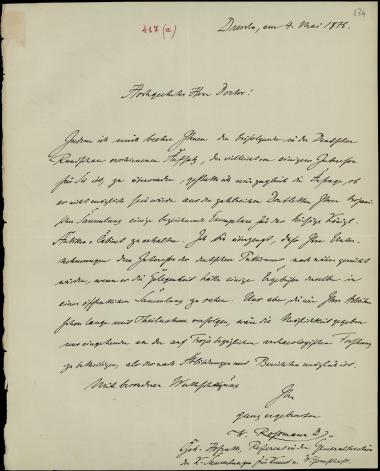 134
417 (a)
Dresden, am 4. Mai 1876.
Hochgeehrter Herr Doctor!
Indem ich mich beehre Ihnen den beifolgenden in der Deutschen
Rundschau erschienenen Aufsatz, der vielleicht von einigem Interesse
für Sie ist, zu übersenden, gestatte ich mir zugleich die Anfrage, ob
es nicht möglich sein würde aus den zahlreichen Doubletten Ihrer trojani-
schen Sammlung einige bezeichnende Exemplare für das hiesige Königl.
Antiken-Cabinet zu erhalten. Ich bin überzeugt, daß Ihren Unter-
nehmungen das Interesse des deutschen Publicums noch näher gerückt
würde, wenn es die Gelegenheit hätte einige Ergebnisse derselben in
einer öffentlichen Sammlung zu sehen. Uns aber die wir Ihre Arbeiten
schon lange mit Theilnahme verfolgen, wäre die Möglichkeit gegeben
uns eingehender an den auf Troja bezüglichen archaeologischen Forschungen
zu betheiligen, als die nach Abbildungen und Berichten möglich ist.
Mit besonderer Werthschätzung
Ihr
ganz ergebenster
W. Rossmann Dr.
Geh. Hofrath, Referent in der Generaldirection
der K. Sammlungen für Kunst u. Wissenschaft.